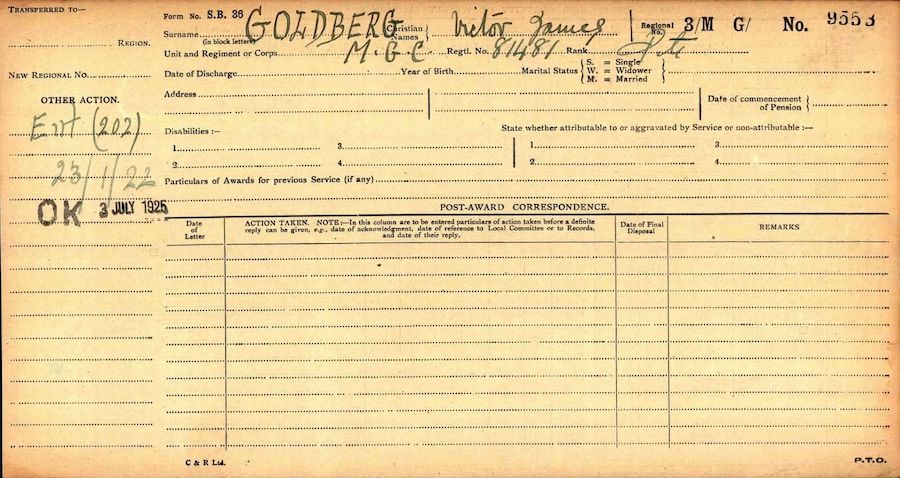 TRANSFERRED TO—
REGION.
NEW REGIONAL No.
OTHER ACTION.
Ent (202)
23/1/22
OK 3 JULY 1925
Form No. S.B. 36
Surname GOLDBERG Christian Names Victor James Regional No. 3/M G/ No. 9553
(in block letters)
Unit and Regiment or Corps M.G.C Regtl. No. 81481 Rank Pte
Date of Discharge Year of Birth Marital Status S. = Single W. = Widower M. = Married
Address Date of commencement of Pension
Disabilities :— State whether attributable to or aggravated by Service or non-attributable :—
1. 3. 1. 3.
2. 4. 2. 4.
Particulars of Awards for previous Service (if any)
POST-AWARD CORRESPONDENCE.
Date of Letter
ACTION TAKEN. NOTE:—In this column are to be entered particulars of action taken before a definite
reply can be given, e.g., date of acknowledgment, date of reference to Local Committee or to Records,
and date of their reply.
Date of Final Disposal
REMARKS
C & R Ltd.
P.T.O.